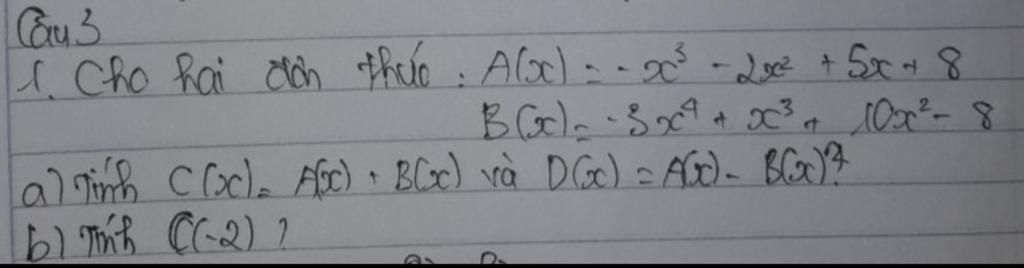 Câu 3
1. Cho hai đơn thức : A(x) = - x³ - 2x² + 5x + 8
B(x) = - 3x⁴ + x³ + 10x² - 8
a) Tính C(x) = A(x) + B(x) và D(x) = A(x) - B(x) ?
b) Tính C(-2) ?